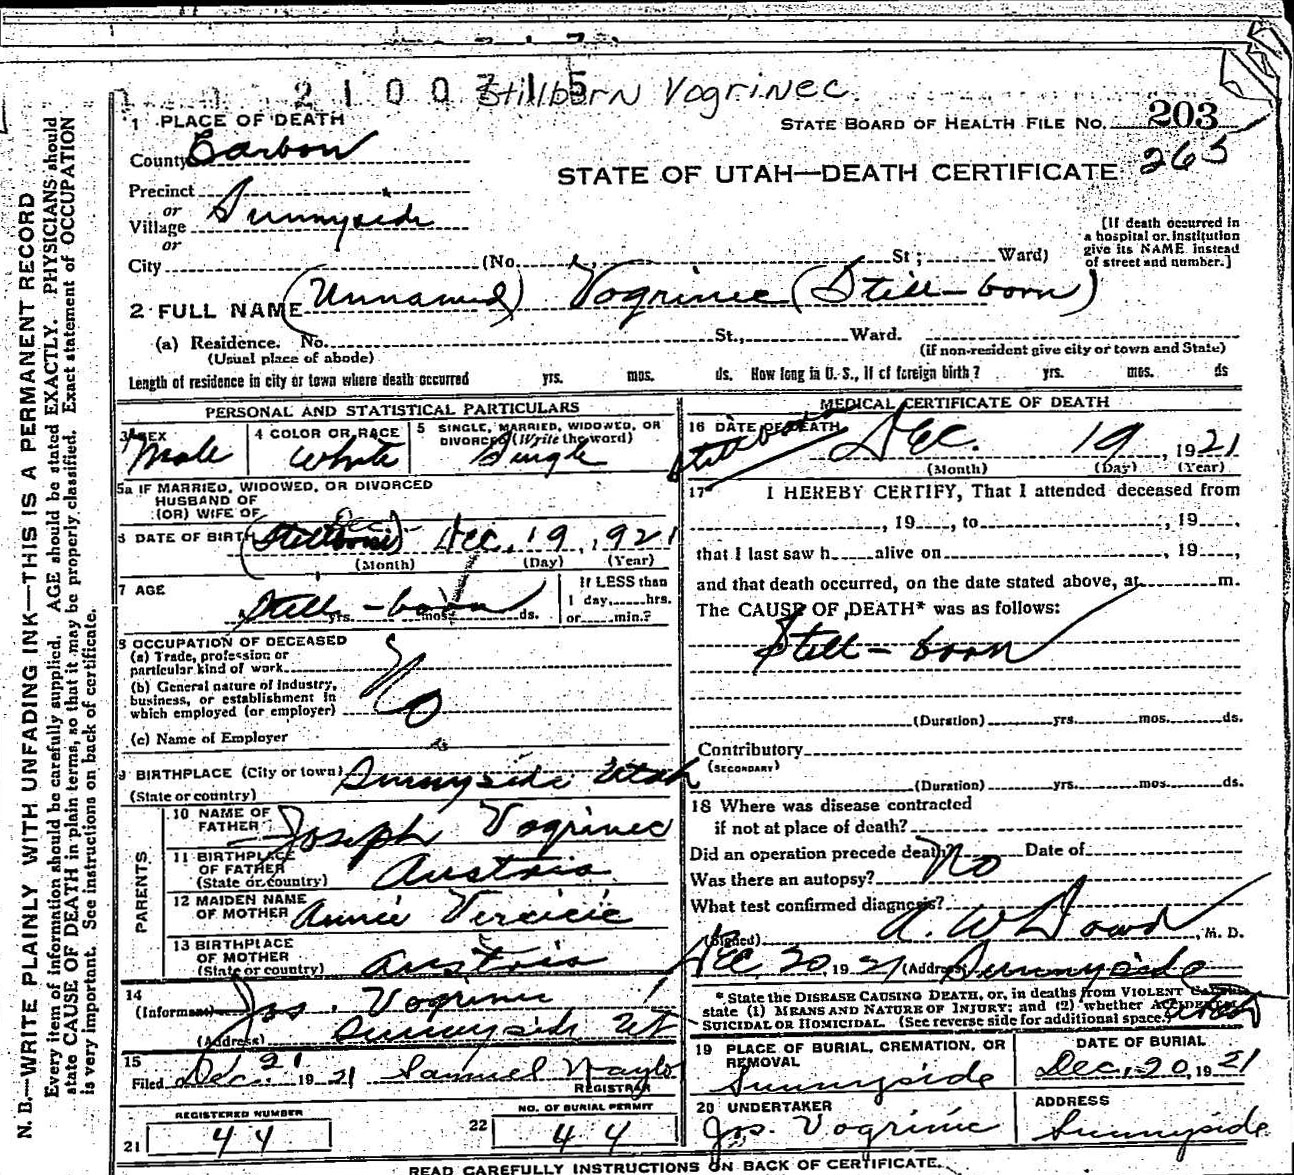 2100715 Stillborn Vogrinec
1 PLACE OF DEATH
STATE BOARD OF HEALTH FILE NO. 203
County Carbon
STATE OF UTAH—DEATH CERTIFICATE 265
Precinct
or
Village Sunnyside
or
[If death occurred in a hospital or institution give its NAME instead of street and number.]
City (No. St; Ward)
2 FULL NAME (Unnamed) Vogrinec (Still-born)
(a) Residence. No. St., Ward.
(Usual place of abode) (If non-resident give city or town and State)
Length of residence in city or town where death occurred yrs. mos. ds. How long in U. S., if of foreign birth? yrs. mos. ds
PERSONAL AND STATISTICAL PARTICULARS
3 SEX Male
4 COLOR OR RACE White
5 SINGLE, MARRIED, WIDOWED, OR DIVORCED (Write the word) Single
5a IF MARRIED, WIDOWED, OR DIVORCED
HUSBAND OF
(OR) WIFE OF
6 DATE OF BIRTH (Stillborn) Dec Dec. 19, 1921
(Month) (Day) (Year)
7 AGE Still-born yrs. mos. ds.
If LESS than 1 day, hrs. or min.?
8 OCCUPATION OF DECEASED
(a) Trade, profession or particular kind of work
(b) General nature of industry, business, or establishment in which employed (or employer)
No
(c) Name of Employer
9 BIRTHPLACE (City or town) Sunnyside Utah
(State or country)
PARENTS
10 NAME OF FATHER Joseph Vogrinec
11 BIRTHPLACE OF FATHER (State or country) Austria
12 MAIDEN NAME OF MOTHER Annie Vercicic
13 BIRTHPLACE OF MOTHER (State or country) Austria
14
(Informant) Jos. Vogrinec
(Address) Sunnyside Ut
15
Filed Dec. 21 1921 Samuel Naylo
REGISTRAR
REGISTERED NUMBER
21 44
NO. OF BURIAL PERMIT
22 44
MEDICAL CERTIFICATE OF DEATH
16 DATE OF DEATH
Stillborn Dec. 19, 1921
(Month) (Day) (Year)
17 I HEREBY CERTIFY, That I attended deceased from
, 19 , to , 19 ,
that I last saw h alive on , 19 ,
and that death occurred, on the date stated above, at m.
The CAUSE OF DEATH* was as follows:
Still-born
(Duration) yrs. mos. ds.
Contributory
(SECONDARY)
(Duration) yrs. mos. ds.
18 Where was disease contracted
if not at place of death?
Did an operation precede death? No Date of
Was there an autopsy?
What test confirmed diagnosis?
(Signed) A. W. Dowd, M. D.
Dec. 20, 1921 (Address) Sunnyside
Utah
* State the DISEASE CAUSING DEATH, or, in deaths from VIOLENT CAUSES,
state (1) MEANS AND NATURE OF INJURY; and (2) whether ACCIDENTAL,
SUICIDAL OR HOMICIDAL. (See reverse side for additional space.)
19 PLACE OF BURIAL, CREMATION, OR REMOVAL
Sunnyside
DATE OF BURIAL
Dec. 20, 1921
20 UNDERTAKER
Jos. Vogrinic
ADDRESS
Sunnyside
READ CAREFULLY INSTRUCTIONS ON BACK OF CERTIFICATE.
N. B.—WRITE PLAINLY WITH UNFADING INK—THIS IS A PERMANENT RECORD
Every item of information should be carefully supplied. AGE should be stated EXACTLY. PHYSICIANS should
state CAUSE OF DEATH in plain terms, so that it may be properly classified. Exact statement of OCCUPATION
is very important. See instructions on back of certificate.